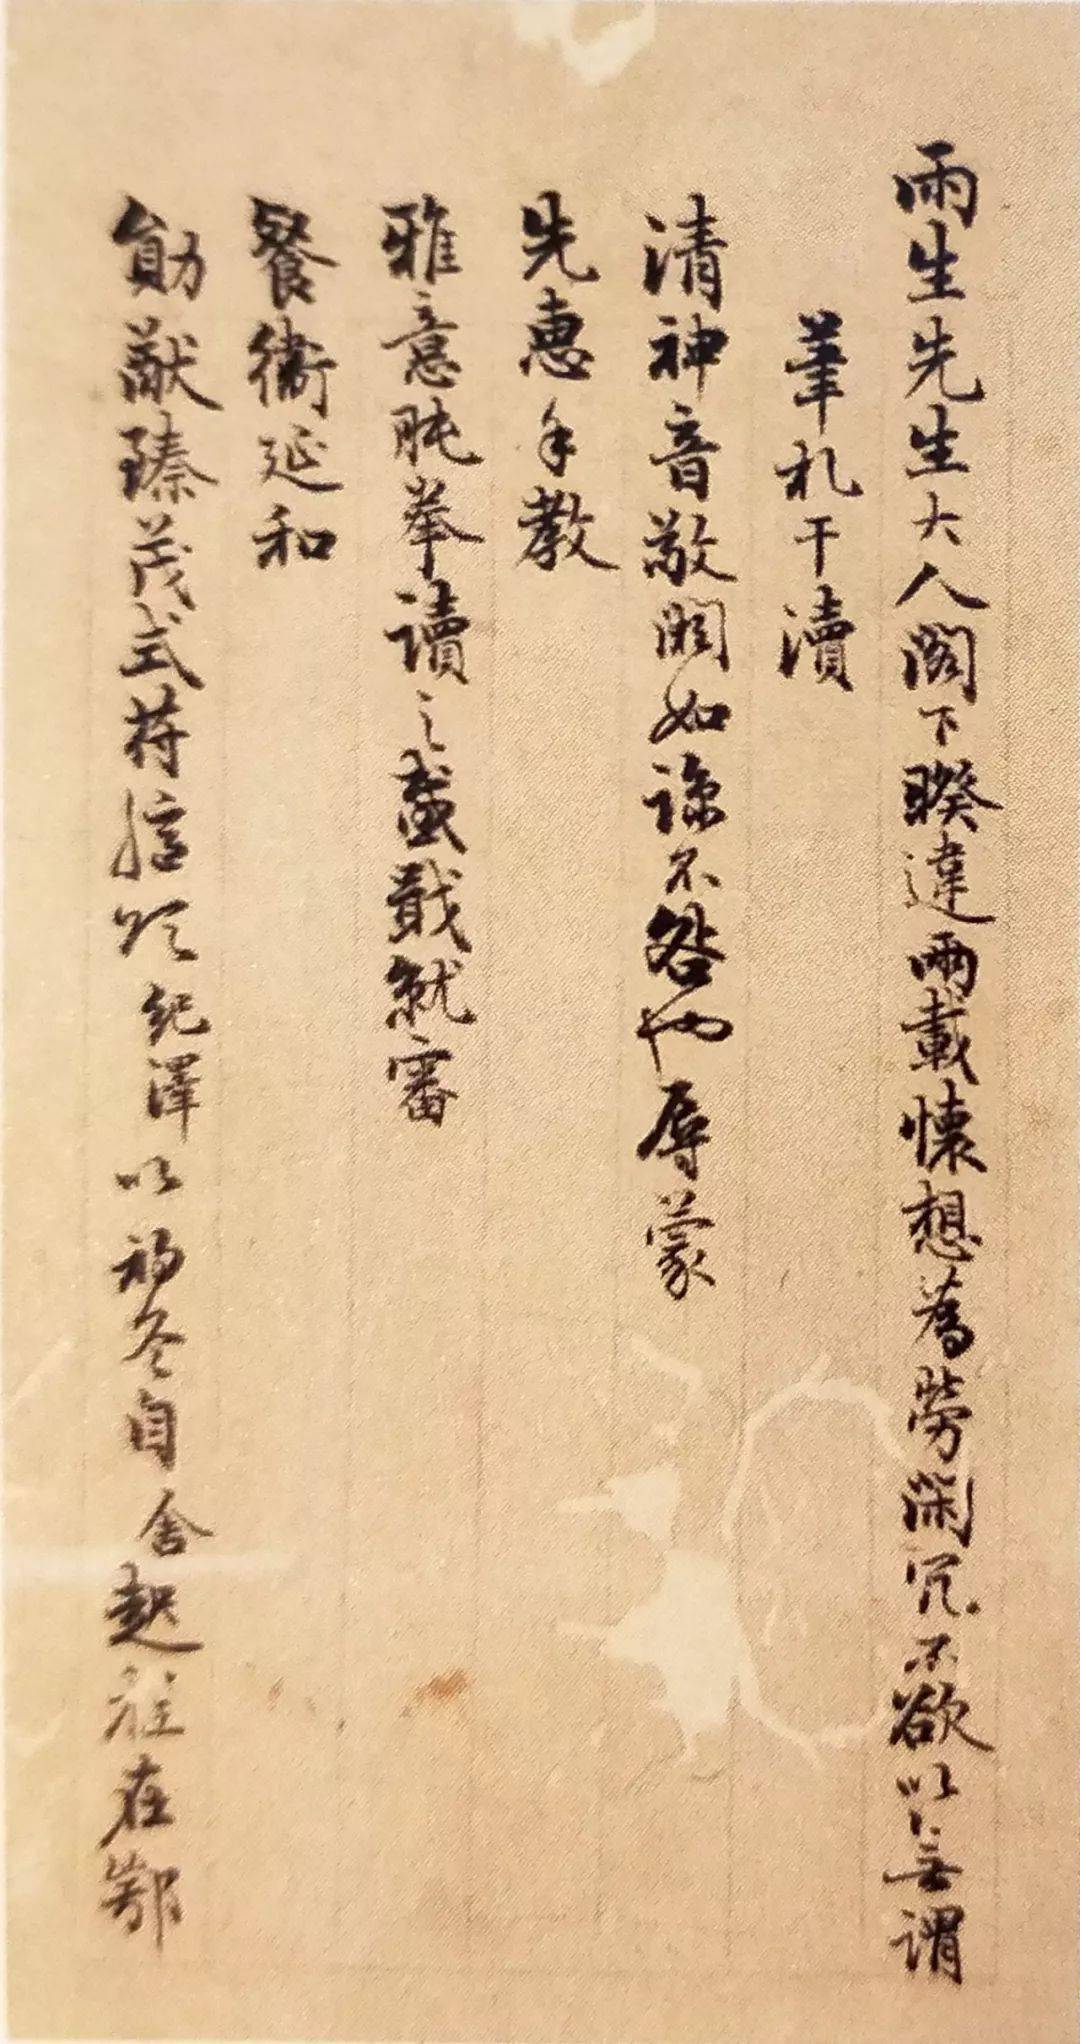 雨生先生大人閣下暌違兩載懷想為勞閑冗不欲以無謂
筆札干瀆
清神音敬闊如諒不咎也辱蒙
先惠手教
雅意肫拳讀之感戢就審
餐衛延和
勛猷臻茂式符信頌紀澤以初冬自舍起程在鄂